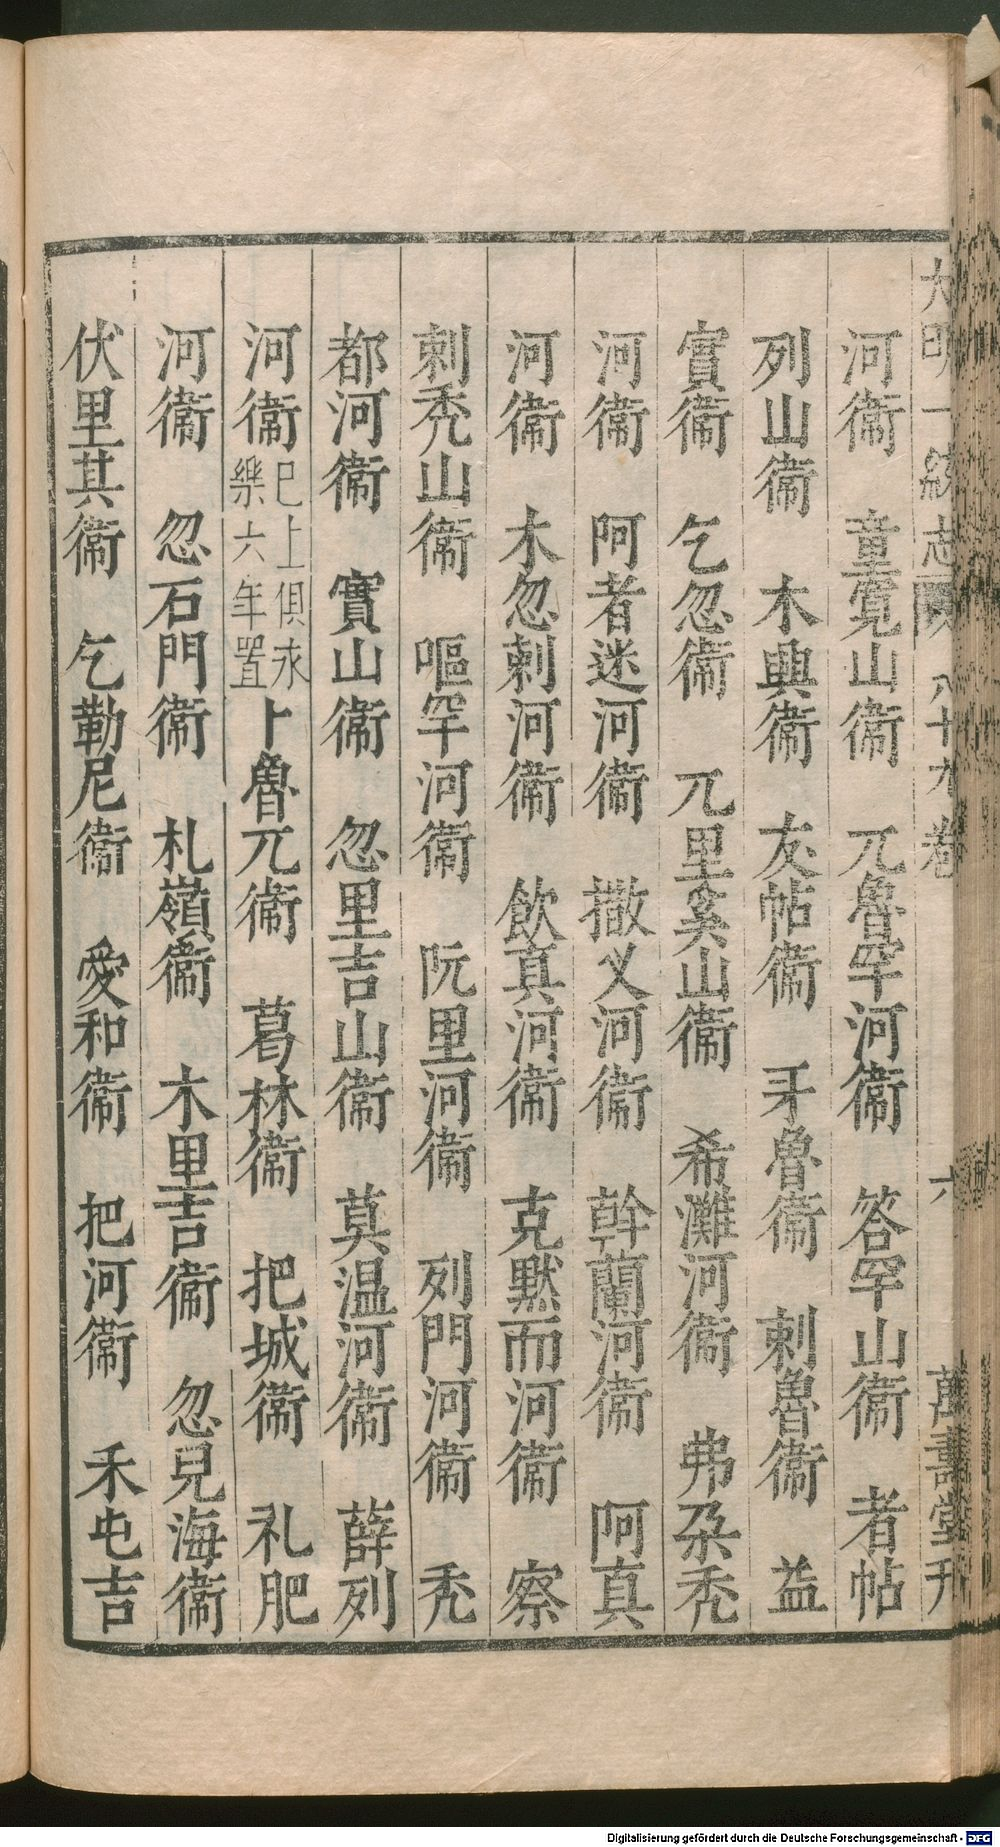 大明一統志 八十九卷 六 萬壽堂刋
河衞 童寛山衞 兀魯罕河衞 答罕山衞 者帖
列山衞 木興衞 友帖衞 牙魯衞 剌魯衞 益
實衞 乞忽衞 兀里奚山衞 希灘河衞 弗朶禿
河衞 阿者迷河衞 撒义河衞 幹蘭河衞 阿真
河衞 木忽剌河衞 飲真河衞 克默而河衞 察
剌禿山衞 嘔罕河衞 阮里河衞 列門河衞 禿
都河衞 實山衞 忽里吉山衞 莫温河衞 薛列
河衞 已上俱永樂六年置 卜魯兀衞 葛林衞 把城衞 礼肥
河衞 忽石門衞 札嶺衞 木里吉衞 忽兒海衞
伏里其衞 乞勒尼衞 愛和衞 把河衞 禾屯吉
Digitalisierung gefördert durch die Deutsche Forschungsgemeinschaft - DFG